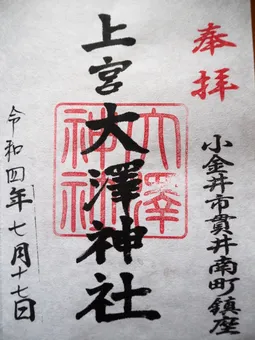 奉拝
小金井市貫井南町鎮座
上宮大澤神社
大澤神社
令和四年七月十七日